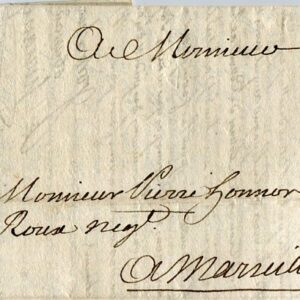 A Monsieur
Monsieur Pierre honnor
Roux negt.
A Marseil